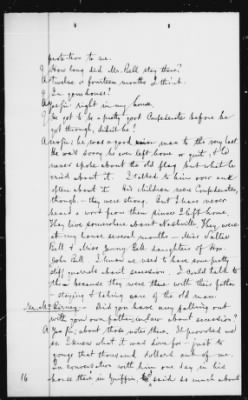 protection to me.
Q How long did Mr. Bell stay there?
A Twelve or fourteen months I think.
Q In your house?
A Yes sir: right in my house.
Q He got to be a pretty good Confederate before he
got through, didn't he?
A No sir; he was a good union man to the very last
He was sorry he ever left home or quit, & he
never spoke about the old flag but what he
cried about it. I talked to him over and
often about it. His children were Confederates,
though – they were strong. But I have never
heard a word from them since I left home.
They live somewhere about Nashville. They were
at my house several months – Miss Sallie
Bell & Miss Jenny Bell daughters of Hon
John Bell. I know we used to have some pretty
stiff quarrels about secession. I could talk to
them because they were there with their father
staying & taking care of the old man.
Did you have any falling out
with your own father-in-law about secession?
A Yes sir, about those notes there. It provoked me
as I knew what it was done for – just to
gouge that thousand dollars out of me.
In conversation with him one day in his
house there in Griffin, he said so much about
16